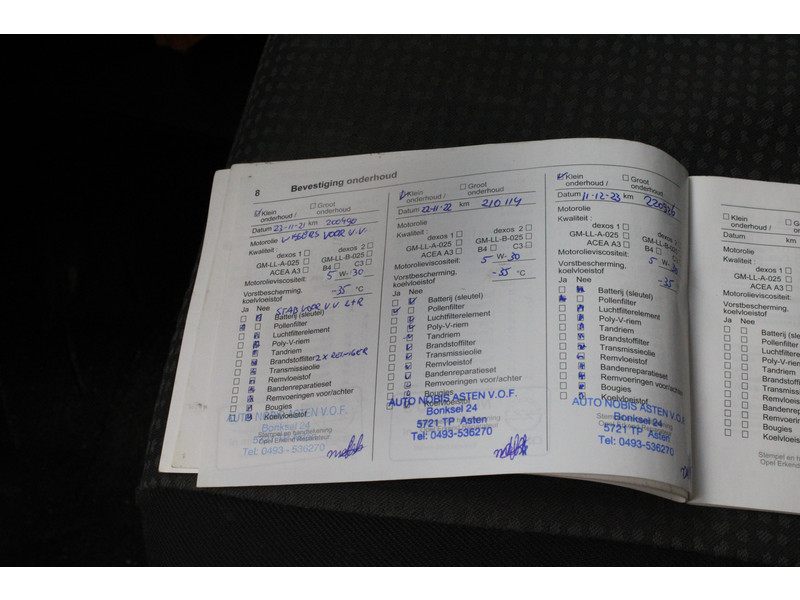 8 Bevestiging onderhoud
Klein onderhoud / Groot onderhoud
Datum 23-11-21 km 200490
Motorolie
Kwaliteit : dexos 1 dexos 2
GM-LL-A-025 GM-LL-B-025
ACEA A3 B4 C3
Motorolieviscositeit: 5 W- 30
Vorstbescherming, koelvloeistof -35 °C
Ja Nee STAB VOOR V.V. L+R
Batterij (sleutel)
Pollenfilter
Luchtfilterelement
Poly-V-riem
Tandriem
Brandstoffilter 2x REINIGER
Transmissieolie
Remvloeistof
Bandenreparatieset
Remvoeringen voor/achter
Bougies
Koelvloeistof
AUTO NOBIS ASTEN V.O.F.
Bonksel 24
Stempel en handtekening
Opel Erkend Reparateur
Tel: 0493-536270
Klein onderhoud / Groot onderhoud
Datum 22-11-22 km 210.114
Motorolie
Kwaliteit :
dexos 1 dexos 2
GM-LL-A-025 GM-LL-B-025
ACEA A3 B4 C3
Motorolieviscositeit: 5 W- 30
Vorstbescherming, koelvloeistof -35 °C
Ja Nee
Batterij (sleutel)
Pollenfilter
Luchtfilterelement
Poly-V-riem
Tandriem
Brandstoffilter
Transmissieolie
Remvloeistof
Bandenreparatieset
Remvoeringen voor/achter
Bougies
AUTO NOBIS ASTEN V.O.F.
Bonksel 24
5721 TP Asten
Tel: 0493-536270
Klein onderhoud / Groot onderhoud
Datum 11-12-23 km
Motorolie
Kwaliteit :
dexos 1 dexos 2
GM-LL-A-025 GM-LL-B-025
ACEA A3 B4 C3
Motorolieviscositeit: 5 W- 30
Vorstbescherming, koelvloeistof -35
Ja Nee
Batterij (sleutel)
Pollenfilter
Luchtfilterelement
Poly-V-riem
Tandriem
Brandstoffilter
Transmissieolie
Remvloeistof
Bandenreparatieset
Remvoeringen voor/achter
Bougies
Koelvloeistof
AUTO NOBIS ASTEN V.O.F
Bonksel 24
5721 TP Asten
Tel: 0493-536270
Klein onderhoud / Groot onderhoud
Datum km
Motorolie
Kwaliteit :
dexos 1
GM-LL-A-025
ACEA A3
Motorolieviscositeit:
Vorstbescherming, koelvloeistof
Ja Nee
Batterij (sle
Pollenfilter
Luchtfilterel
Poly-V-riem
Tandriem
Brandstoffi
Transmissie
Remvloeist
Bandenrepa
Remvoering
Bougies
Koelvloeisto
Stempel en h
Opel Erkend